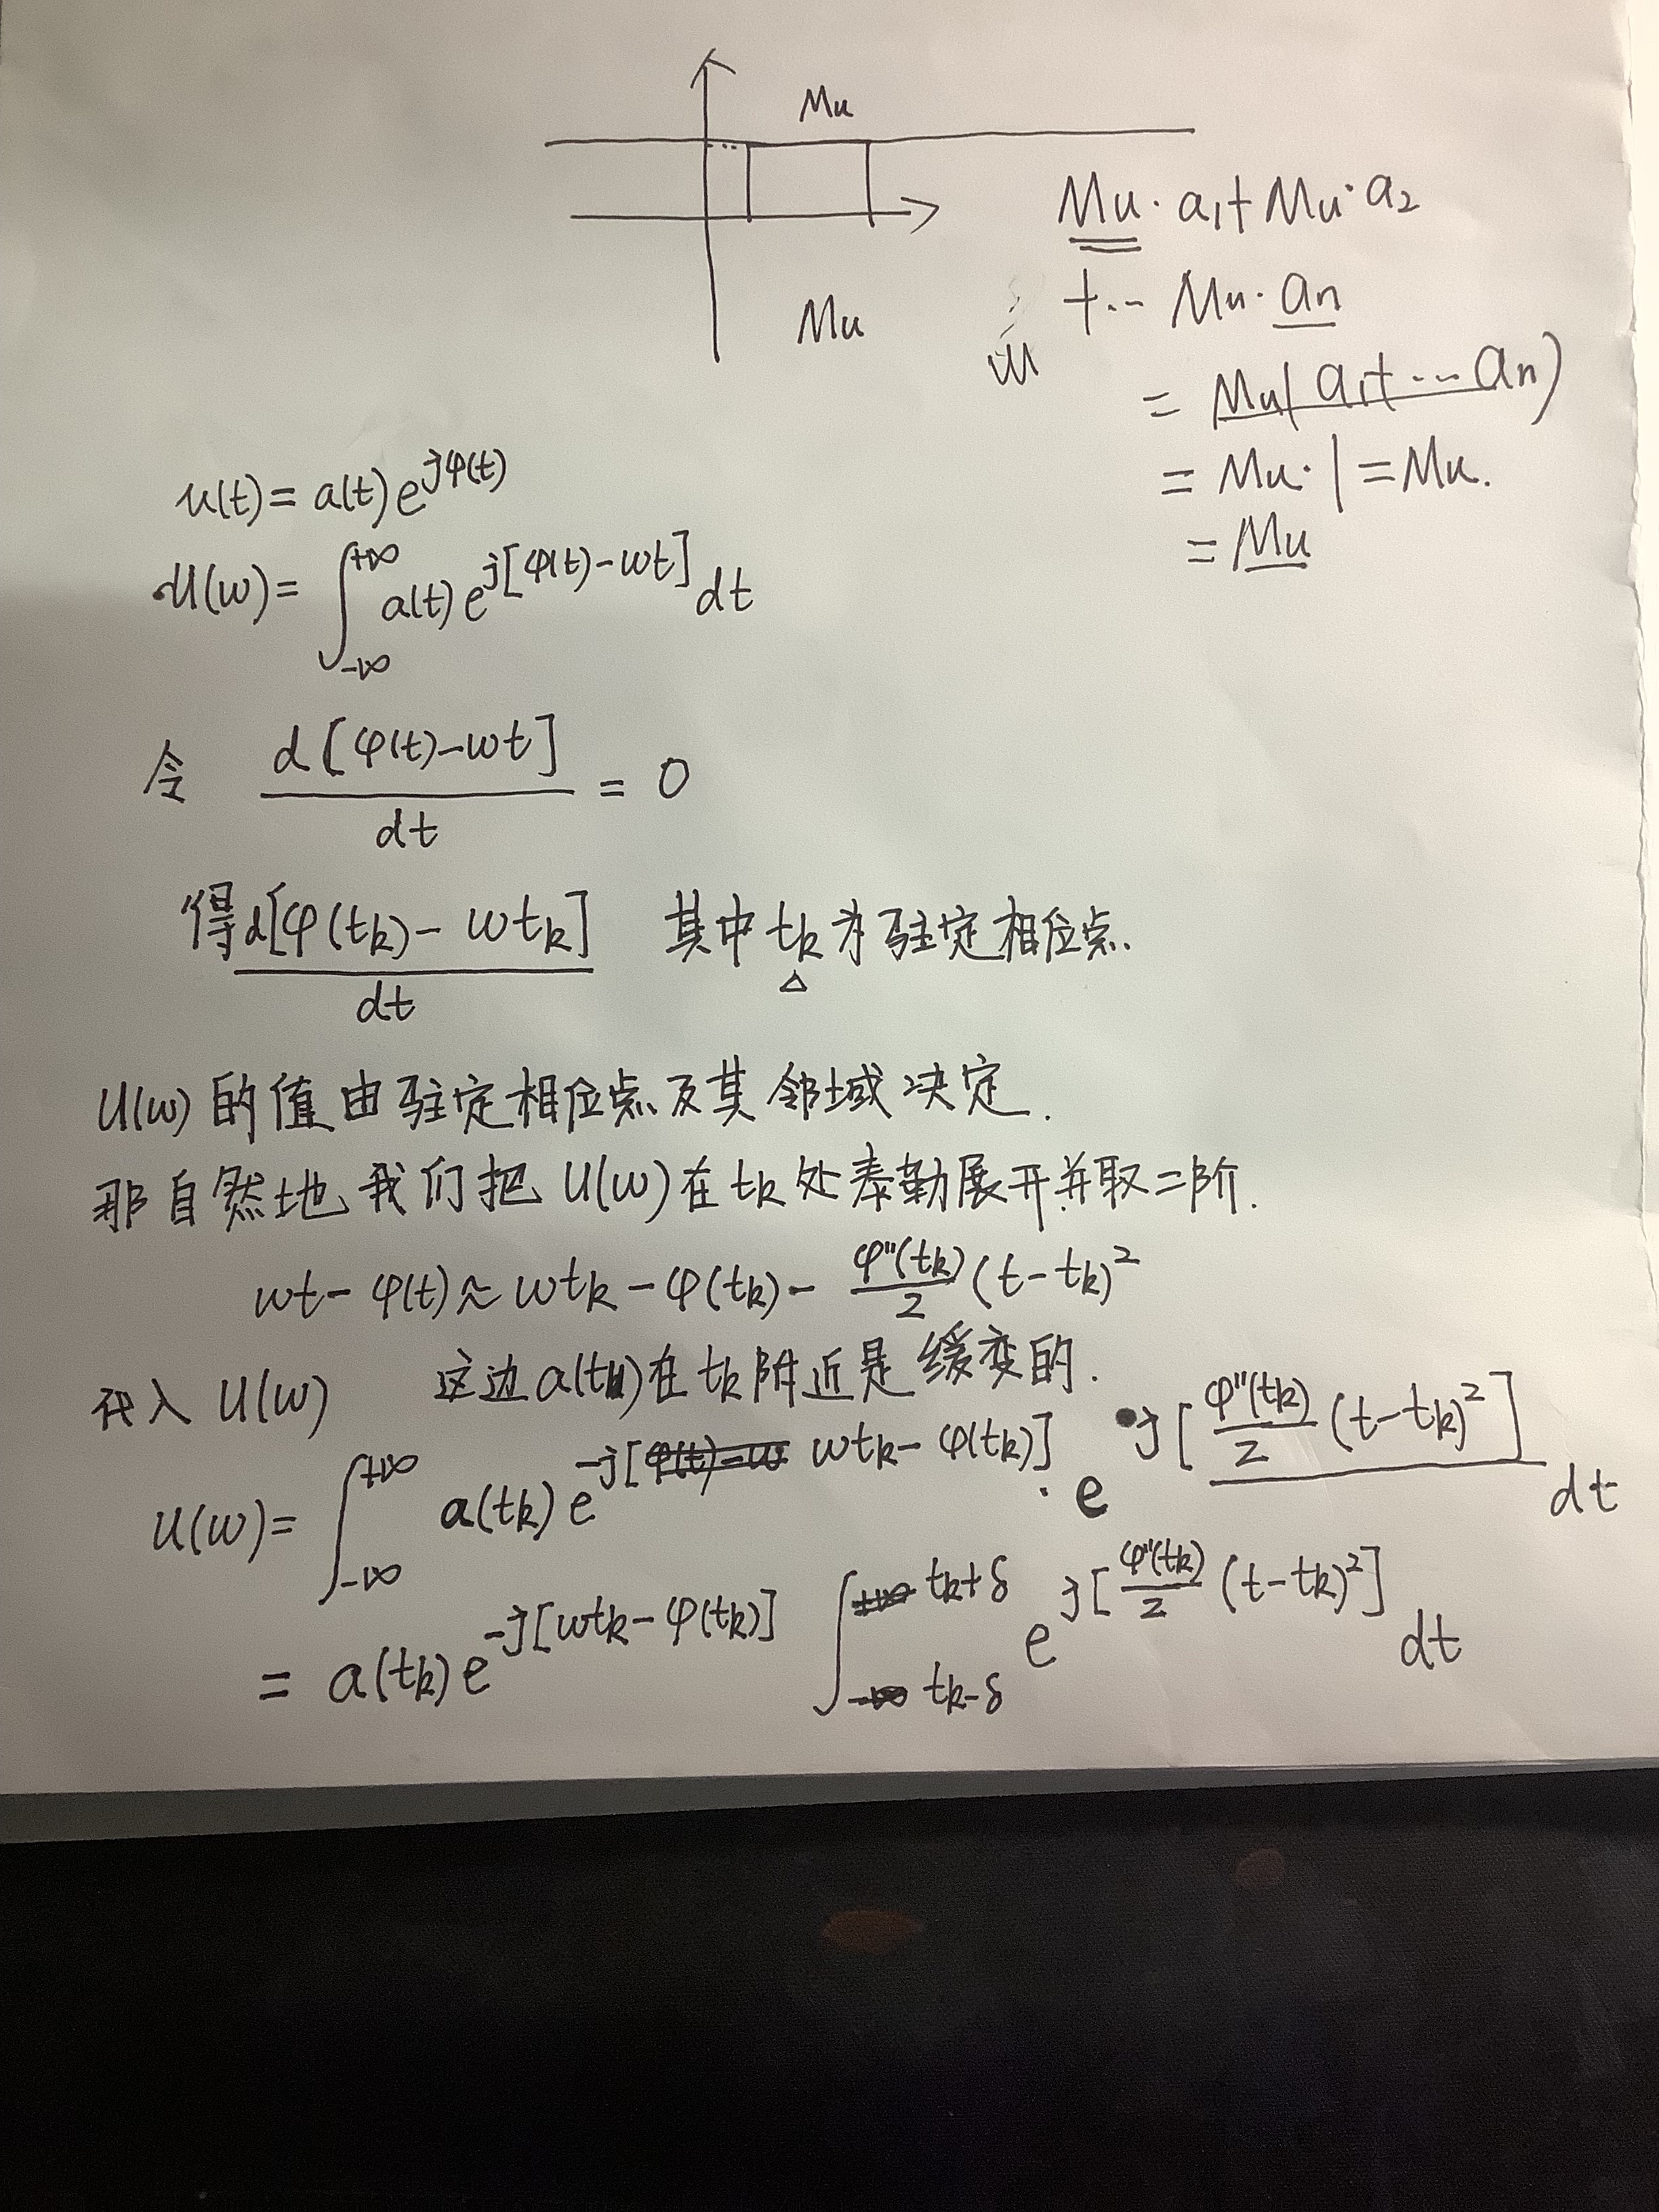 Mu
Mu
Mu · a₁ + Mu · a₂
+ ·-- Mu · an
= Mu( a₁+ ··-- an)
= Mu · 1 = Mu.
= Mu
u(t) = a(t) e^{jφ(t)}
U(w) = ∫_{-∞}^{+∞} a(t) e^{j[φ(t)-wt]} dt
令 d[φ(t)-wt] / dt = 0
得 d[φ(tk) - wtk] / dt 其中 tk 为驻定相位点.
△
U(w) 的值由驻定相位点及其邻域决定.
那自然地 我们把 U(w) 在 tk 处泰勒展开并取二阶.
wt - φ(t) ≈ wtk - φ(tk) - φ''(tk)/2 (t-tk)²
代入 U(w) 这边 a(tk) 在 tk 附近是缓变的.
U(w) = ∫_{-∞}^{+∞} a(tk) e^{-j[wtk - φ(tk)]} · e^{j[φ''(tk)/2 (t-tk)²]} dt
= a(tk) e^{-j[wtk - φ(tk)]} ∫_{tk-δ}^{tk+δ} e^{j[φ''(tk)/2 (t-tk)²]} dt